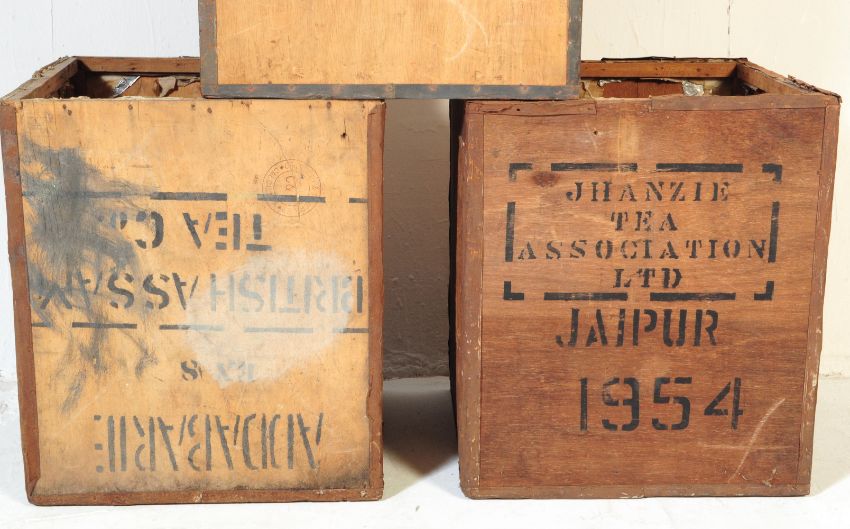 ADDABARIE
BRITISH ASSAM
TEA CO.
JHANZIE
TEA
ASSOCIATION
LTD
JAIPUR
1954